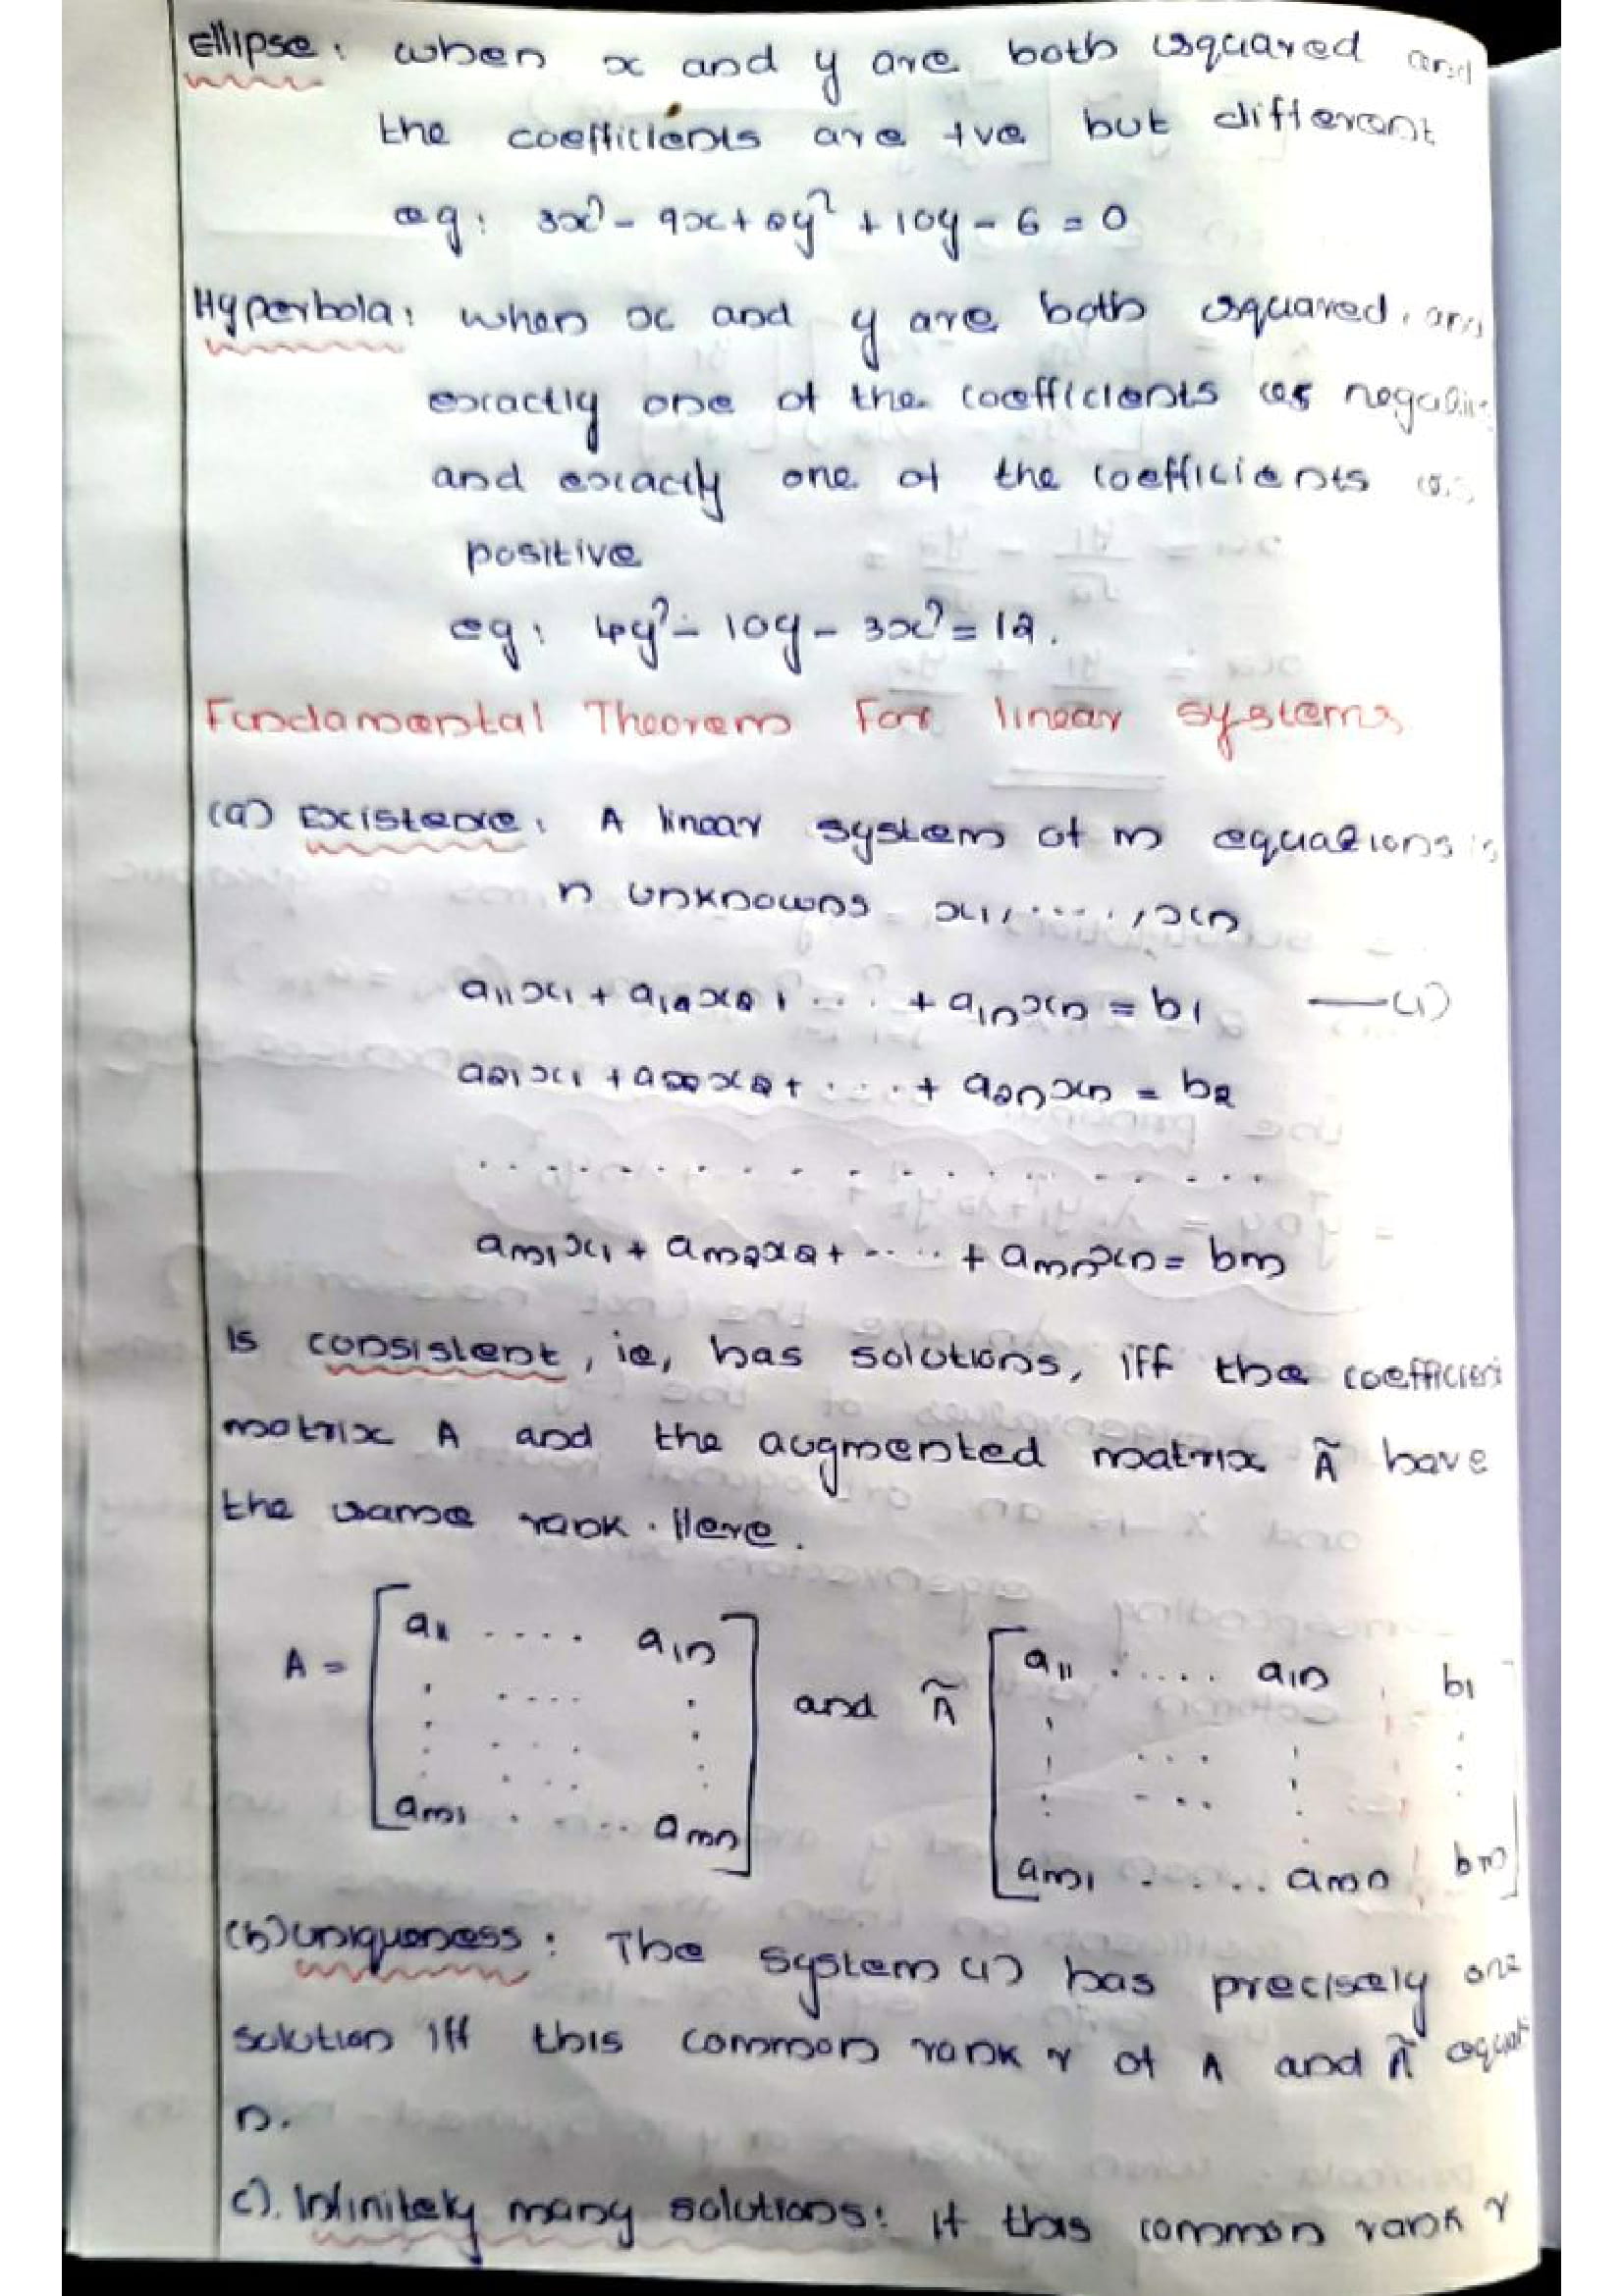 Ellipse: when x and y are both squared and
the coefficients are +ve but different
eg: 3x² - 9x + 2y² + 10y - 6 = 0
Hyperbola: when x and y are both squared, and
exactly one of the coefficients is negative
and exactly one of the coefficients is
positive
eg: 4y² - 10y - 3x² = 12.
Fundamental Theorem For linear systems
(a) Existence: A linear system of m equations in
n unknowns x₁, ....., xₙ
a₁₁x₁ + a₁₂x₂ + .... + a₁ₙxₙ = b₁ —(1)
a₂₁x₁ + a₂₂x₂ + .... + a₂ₙxₙ = b₂
. . . . . . . . . . . . . . . .
aₘ₁x₁ + aₘ₂x₂ + ..... + aₘₙxₙ = bₘ
is consistent, ie, has solutions, iff the coefficient
matrix A and the augmented matrix Ã have
the same rank. Here.
A = [a₁₁ .... a₁ₙ ; aₘ₁ .... aₘₙ] and Ã [a₁₁ ..... a₁ₙ b₁ ; aₘ₁ ..... aₘₙ bₘ]
(b) Uniqueness: The system (1) has precisely one
solution iff this common rank r of A and Ã equals
n.
c). Infinitely many solutions: if this common rank r